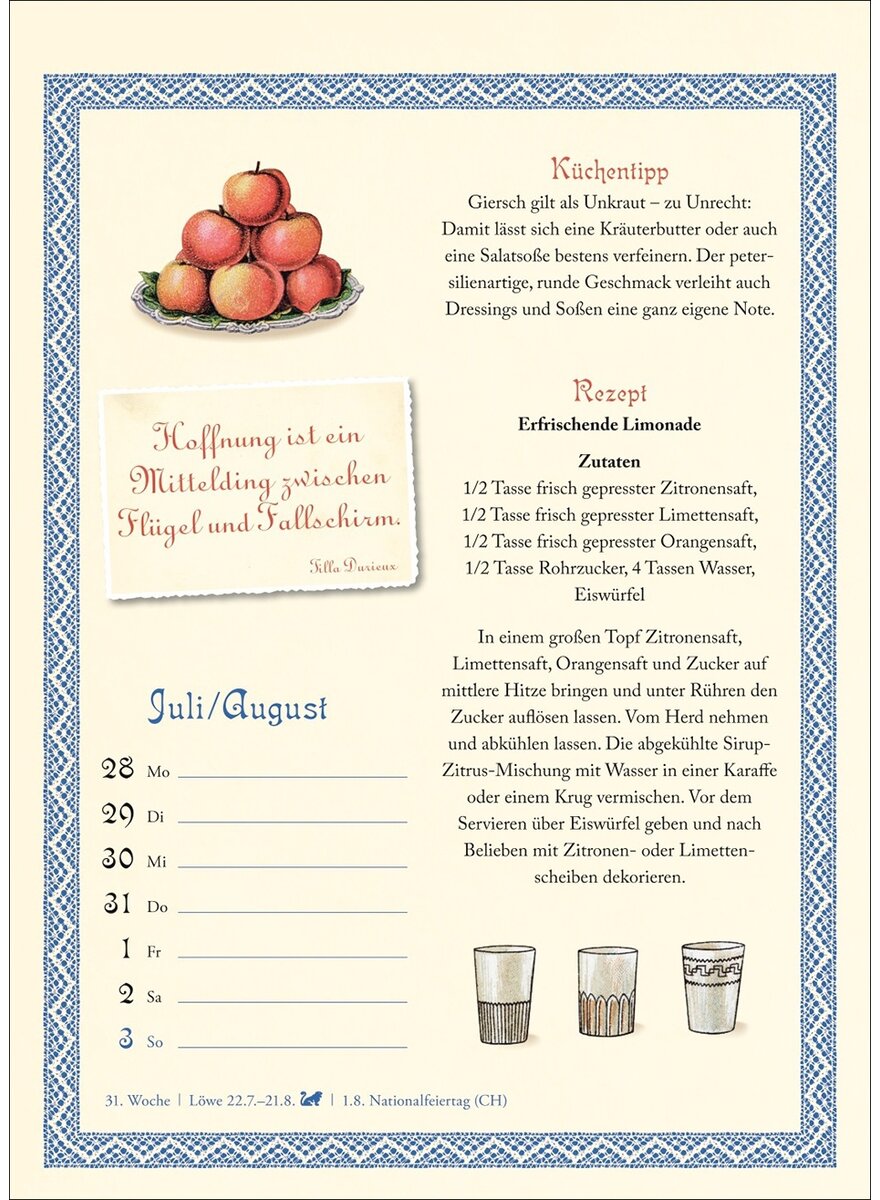 Küchentipp
Giersch gilt als Unkraut – zu Unrecht:
Damit lässt sich eine Kräuterbutter oder auch
eine Salatsoße bestens verfeinern. Der peter-
silienartige, runde Geschmack verleiht auch
Dressings und Soßen eine ganz eigene Note.
Hoffnung ist ein
Mittelding zwischen
Flügel und Fallschirm.
Tilla Durieux
Rezept
Erfrischende Limonade
Zutaten
1/2 Tasse frisch gepresster Zitronensaft,
1/2 Tasse frisch gepresster Limettensaft,
1/2 Tasse frisch gepresster Orangensaft,
1/2 Tasse Rohrzucker, 4 Tassen Wasser,
Eiswürfel
In einem großen Topf Zitronensaft,
Limettensaft, Orangensaft und Zucker auf
mittlere Hitze bringen und unter Rühren den
Zucker auflösen lassen. Vom Herd nehmen
und abkühlen lassen. Die abgekühlte Sirup-
Zitrus-Mischung mit Wasser in einer Karaffe
oder einem Krug vermischen. Vor dem
Servieren über Eiswürfel geben und nach
Belieben mit Zitronen- oder Limetten-
scheiben dekorieren.
Juli/August
28 Mo
29 Di
30 Mi
31 Do
1 Fr
2 Sa
3 So
31. Woche | Löwe 22.7.–21.8. | 1.8. Nationalfeiertag (CH)